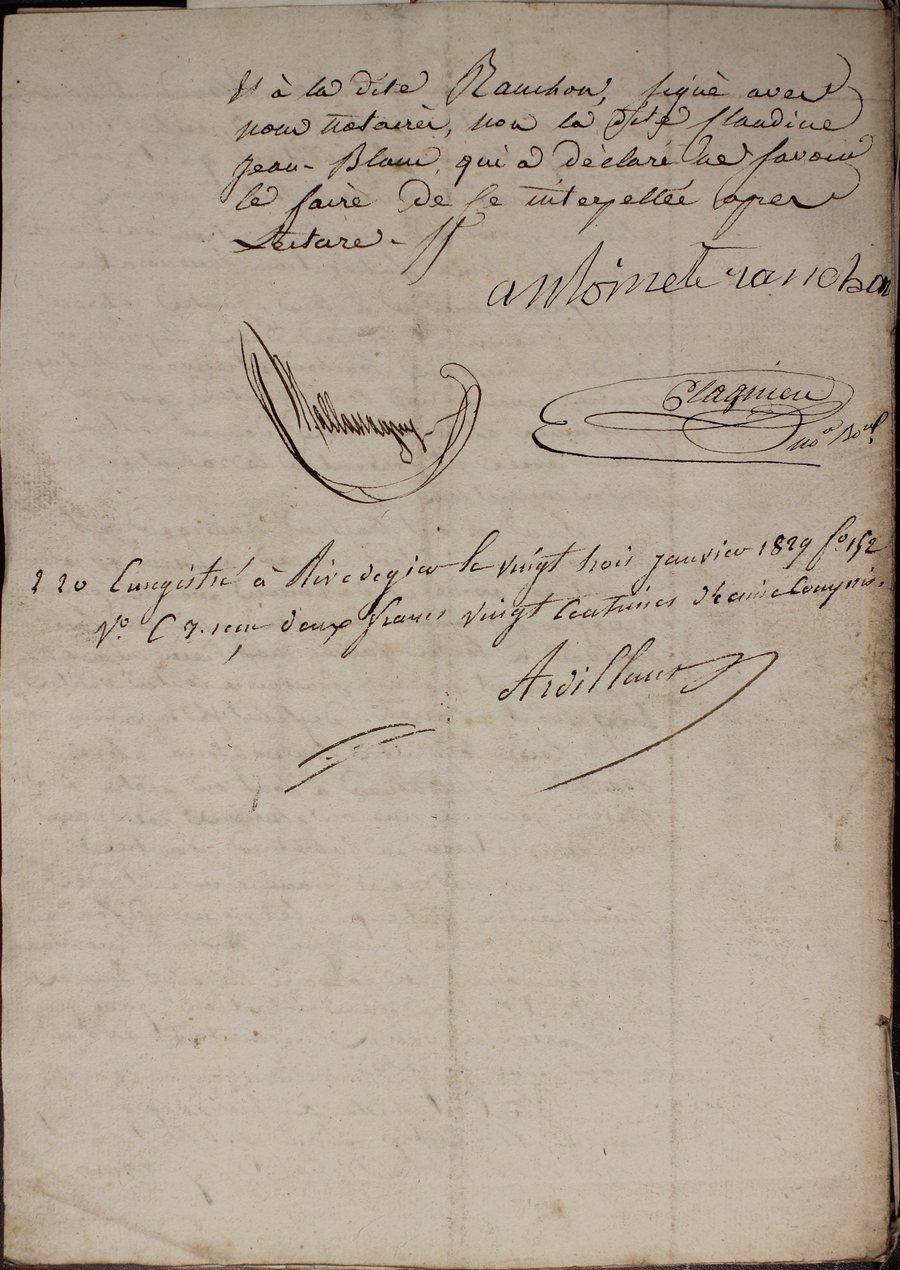 et à la dite Ranchon, signé avec
nous notaires, non la dite Claudine
Jean-Blanc, qui a déclaré ne savoir
le faire de ce interpellée après
Lecture -
antoinete ranchon
Plagnieu
no.e Ro.al
2 20 Enregistré à Rivedegier le vingt trois janvier 1829 f.o 152
V.o C 7. reçu deux francs vingt Centimes décime Compris.
Ardillaux